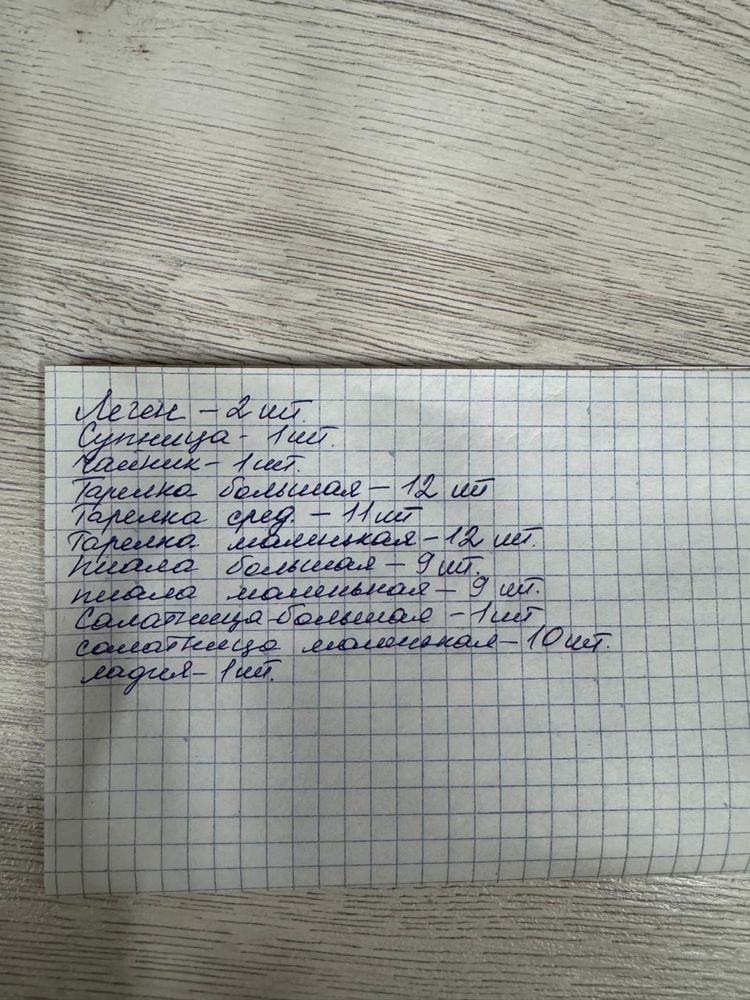 Леген – 2 шт.
Супница - 1 шт.
Чайник - 1 шт.
Тарелка большая – 12 шт
Тарелка сред. – 11 шт
Тарелка маленькая – 12 шт.
Пиала большая – 9 шт.
пиала маленькая – 9 шт.
Салатница большая – 1 шт
салатница маленькая – 10 шт.
ладия – 1 шт.